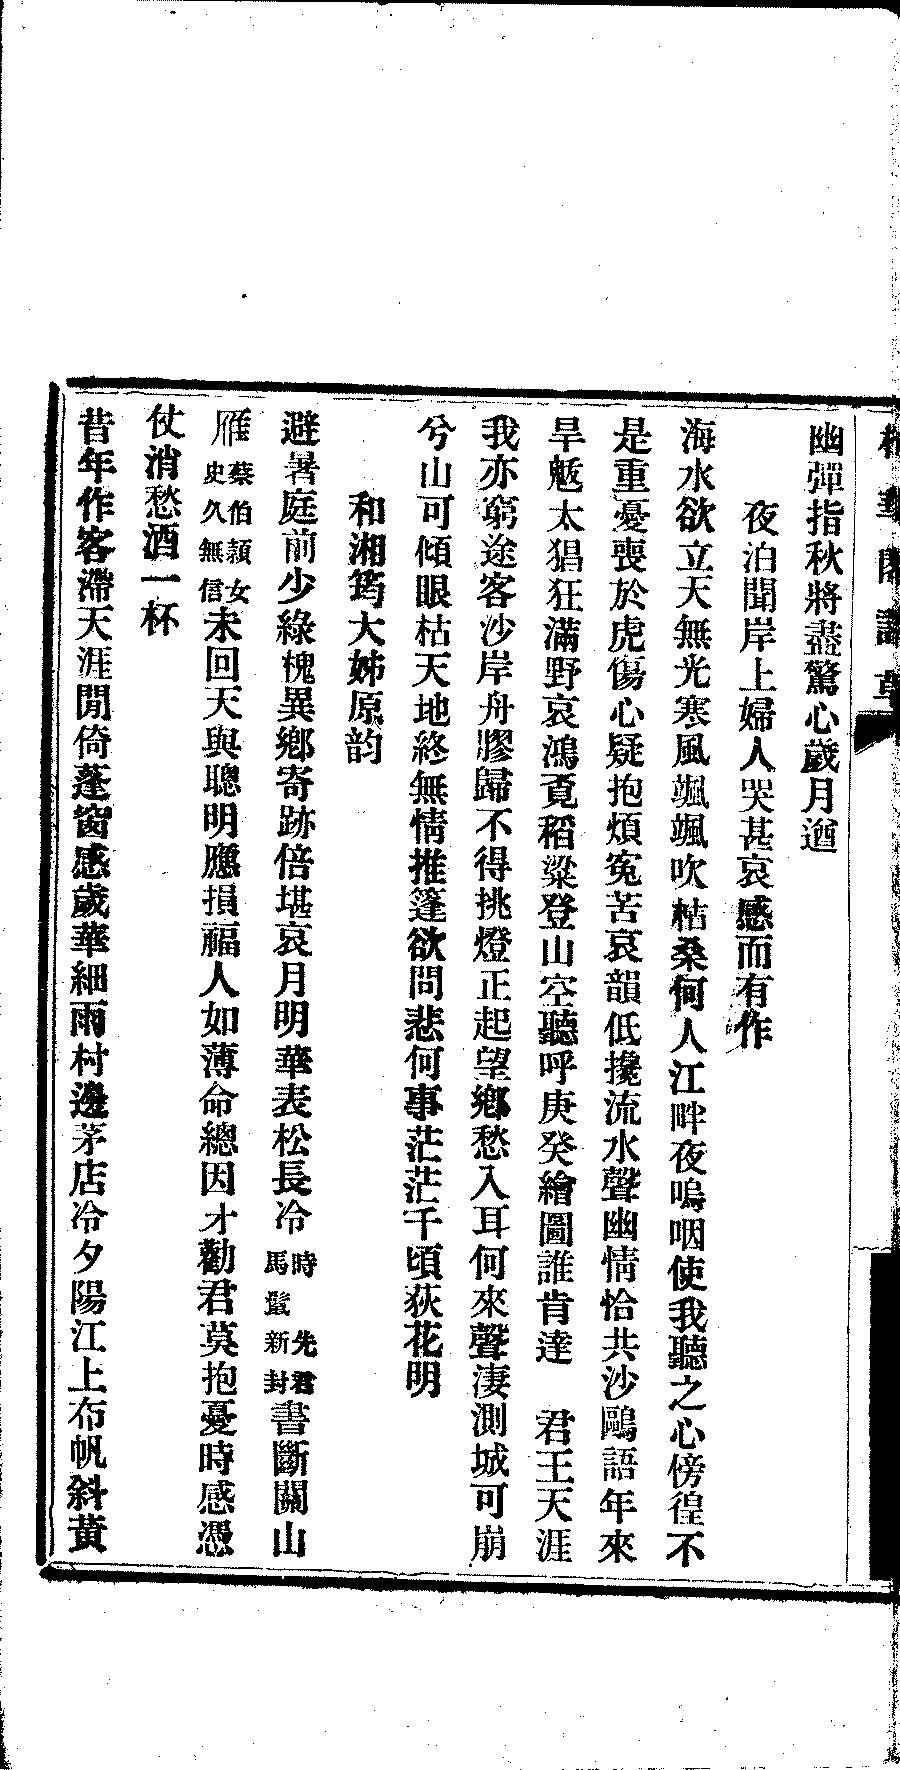 幽彈指秋將盡驚心歲月遒
夜泊聞岸上婦人哭甚哀感而有作
海水欲立天無光寒風颯颯吹枯桑何人江畔夜嗚咽使我聽之心傍徨不
是重憂喪於虎傷心疑抱煩冤苦哀韻低攙流水聲幽情恰共沙鷗語年來
旱魃太猖狂滿野哀鴻覓稻粱登山空聽呼庚癸繪圖誰肯達 君王天涯
我亦窮途客沙岸舟膠歸不得挑燈正起望鄉愁入耳何來聲淒測城可崩
兮山可傾眼枯天地終無情推篷欲問悲何事茫茫千頃荻花明
和湘筠大姊原韵
避暑庭前少綠槐異鄉寄跡倍堪哀月明華表松長冷時 先君馬鬣新封書斷關山
雁蔡伯頴女史久無信未回天與聰明應損福人如薄命總因才勸君莫抱憂時感憑
仗消愁酒一杯
昔年作客滯天涯閒倚蓬窗感歲華細雨村邊茅店冷夕陽江上布帆斜黃